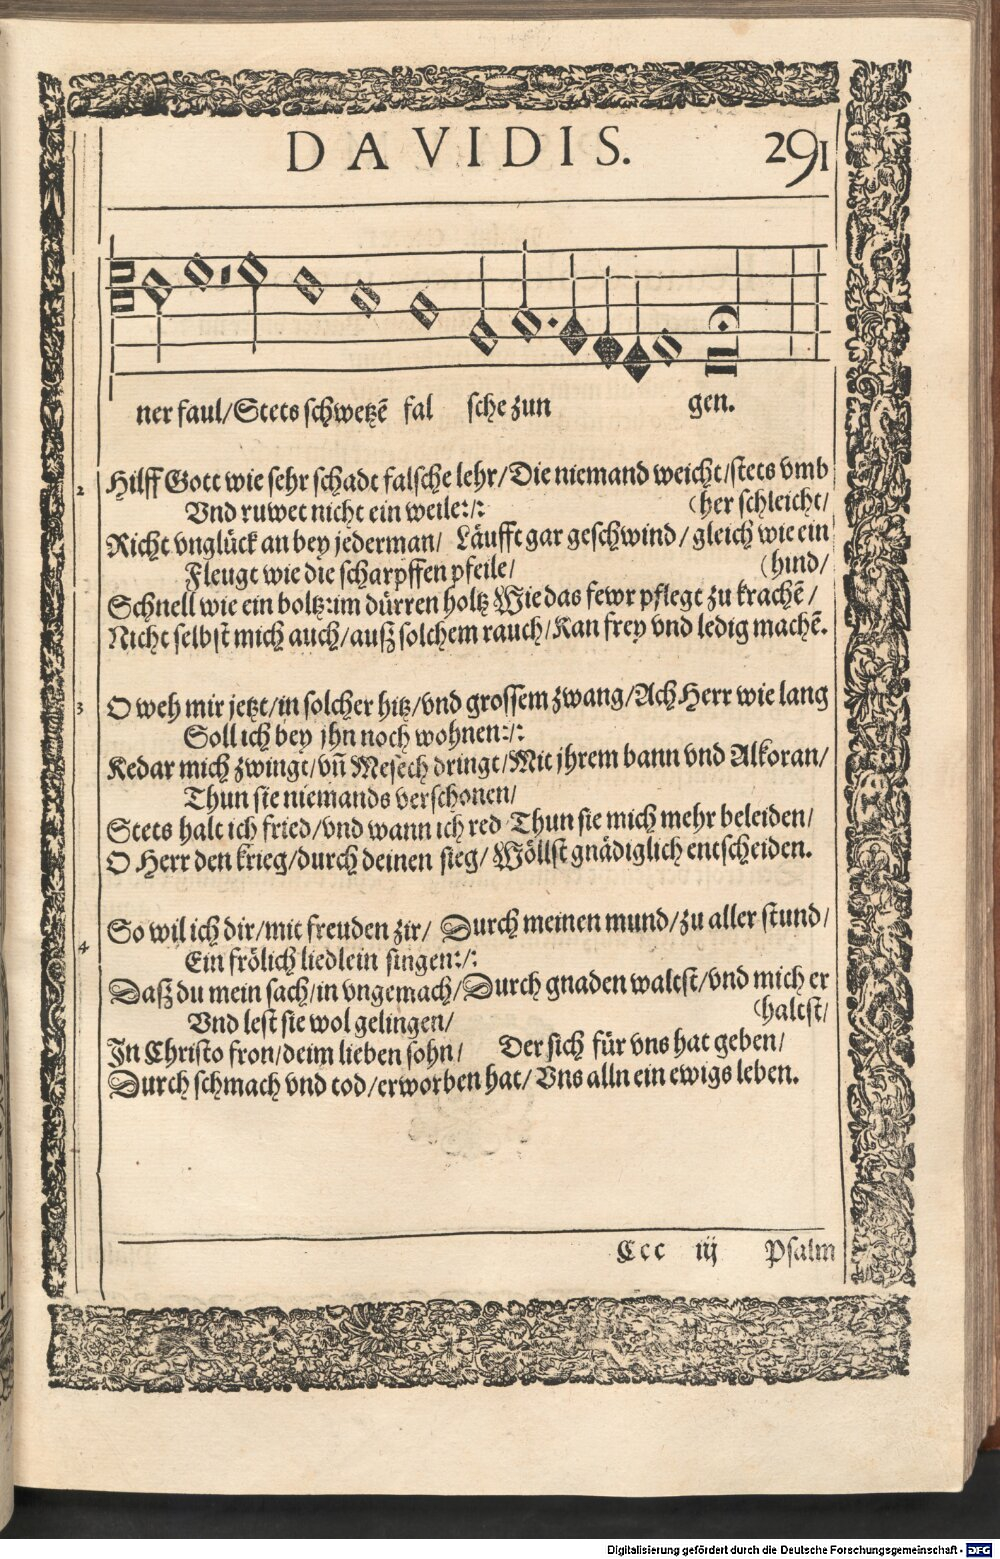 DAVIDIS. 291
ner faul/Stets schwetzẽ fal sche zun gen.
2 Hilff Gott wie sehr schadt falsche lehr/Die niemand weicht/stets vmb
Vnd ruwet nicht ein weile:/: (her schleicht/
Richt vnglück an bey jederman/ Läufft gar geschwind/gleich wie ein
Fleugt wie die scharpffen pfeile/ (hind/
Schnell wie ein boltz:im dürren holtz Wie das fewr pflegt zu krachẽ/
Nicht selbst mich auch/auß solchem rauch/Kan frey vnd ledig machẽ.
3 O weh mir jetzt/in solcher hitz/vnd grossem zwang/Ach Herr wie lang
Soll ich bey jhn noch wohnen:/:
Kedar mich zwingt/vñ Mesech dringt/Mit jhrem bann vnd Alkoran/
Thun sie niemands verschonen/
Stets halt ich fried/vnd wann ich red Thun sie mich mehr beleiden/
O Herr den krieg/durch deinen sieg/ Wöllst gnädiglich entscheiden.
4 So wil ich dir/mit freuden zir/ Durch meinen mund/zu aller stund/
Ein frölich liedlein singen:/:
Daß du mein sach/in vngemach/Durch gnaden waltst/vnd mich er
Vnd lest sie wol gelingen/ (haltst/
In Christo fron/deim lieben sohn/ Der sich für vns hat geben/
Durch schmach vnd tod/erworben hat/ Vns alln ein ewigs leben.
Ccc iij Psalm
Digitalisierung gefördert durch die Deutsche Forschungsgemeinschaft - DFG